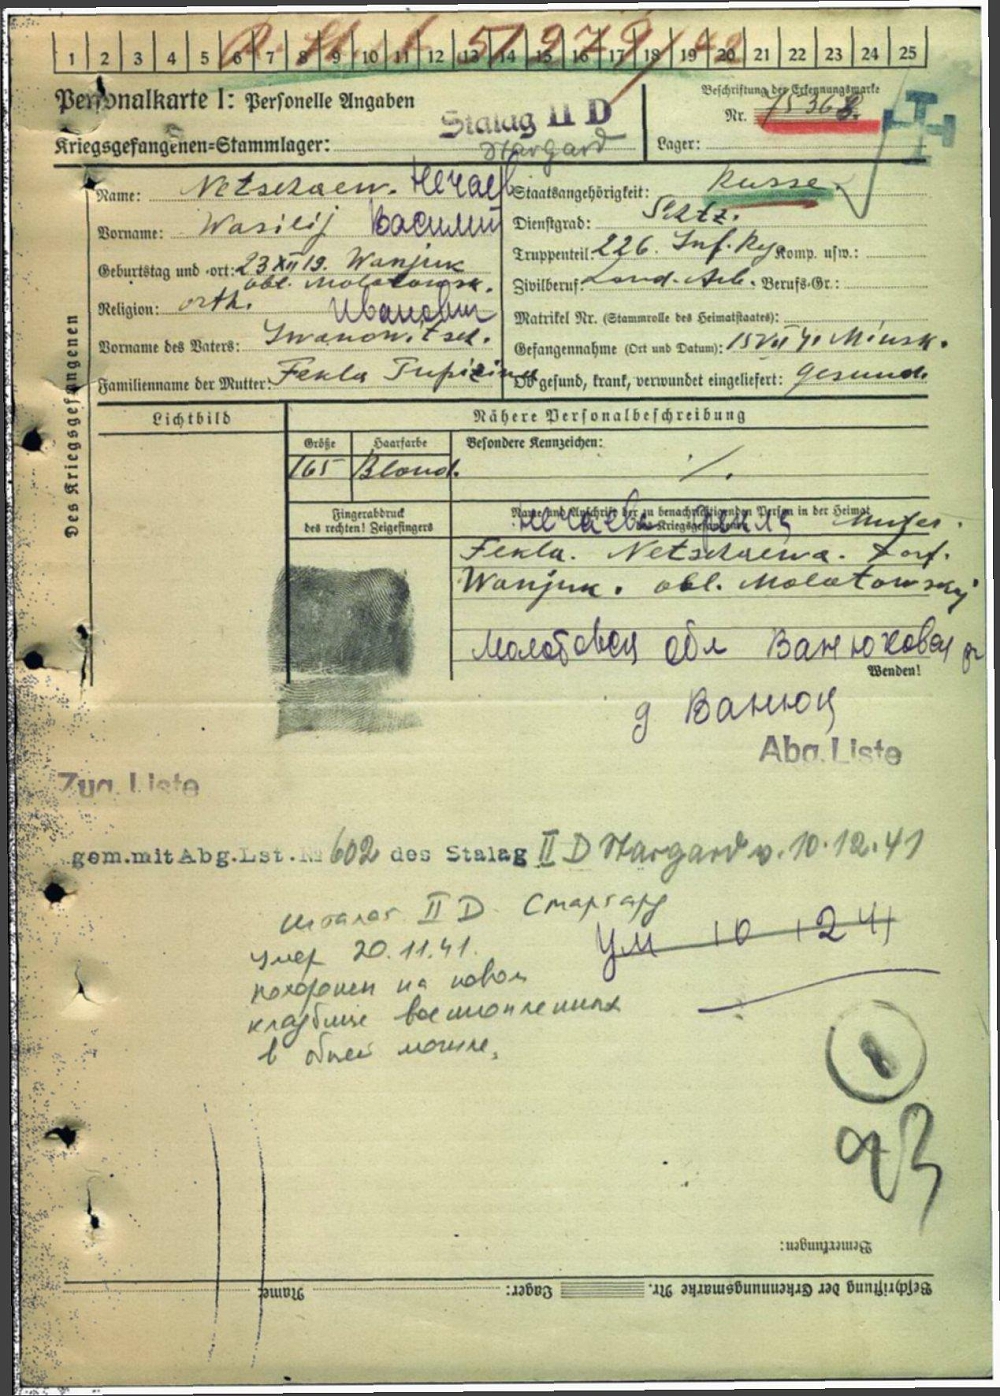 1 2 3 4 5 6 7 8 9 10 11 12 13 14 15 16 17 18 19 20 21 22 23 24 25
Personalkarte I: Personelle Angaben
Beschriftung der Erkennungsmarke
Stalag II D
Nr. 75368.
Kriegsgefangenen-Stammlager: Stargard
Lager:
Des Kriegsgefangenen
Name: Netschaew. Нечаев
Staatsangehörigkeit: Russe.
Vorname: Wasilij Василий
Dienstgrad:
Geburtstag und -ort: 23 XII 19. Wanjuk
obl. Molotowsk.
Truppenteil: 226. Inf. Reg Komp. usw.:
Religion: orth. Иванович
Zivilberuf: Land. Arb. Berufs-Gr.:
Matrikel Nr. (Stammrolle des Heimatstaates):
Vorname des Vaters: Iwanowitsch.
Gefangennahme (Ort und Datum): 15 VII 41 Minsk.
Familienname der Mutter: Fekla
Ob gesund, krank, verwundet eingeliefert: gesund.
Lichtbild
Nähere Personalbeschreibung
Größe
Haarfarbe
Besondere Kennzeichen:
165
Blond.
./.
Fingerabdruck
des rechten! Zeigefingers
Name und Anschrift der zu benachrichtigenden Person in der Heimat
des Kriegsgefangenen
Нечаева Фекла Mutter.
Fekla. Netschaewa. Dorf.
Wanjuk. obl. Molotowskij
Молотовск обл Ванюковск
Wenden!
д Ванюк
Abg. Liste
Zug. Liste
gem.mit Abg.Lst. № 602 des Stalag II D Stargard v. 10.12.41
шталаг II D. Старгард
умер 20.11.41.
ум 10 12 41
похоронен на новом
кладбище военнопленных
в общей могиле.
Bemerkungen:
Name:
Lager:
Beschriftung der Erkennungsmarke Nr.